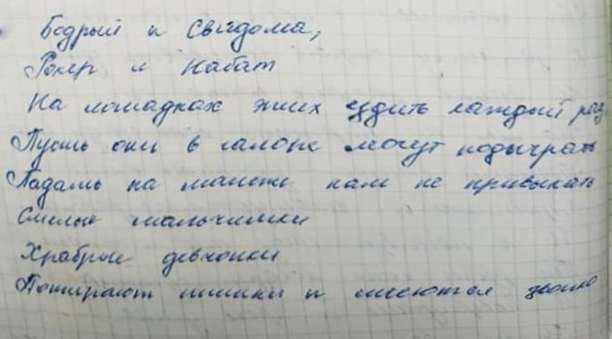 Бодрый и Свидома,
Рокер и Набат
На лошадках этих ездить каждый раз.
Пусть они в галопе могут подыграть
Падать на манеже нам не привыкать
Смелые мальчишки
Храбрые девчонки
Потирают шишки и смеются звонко